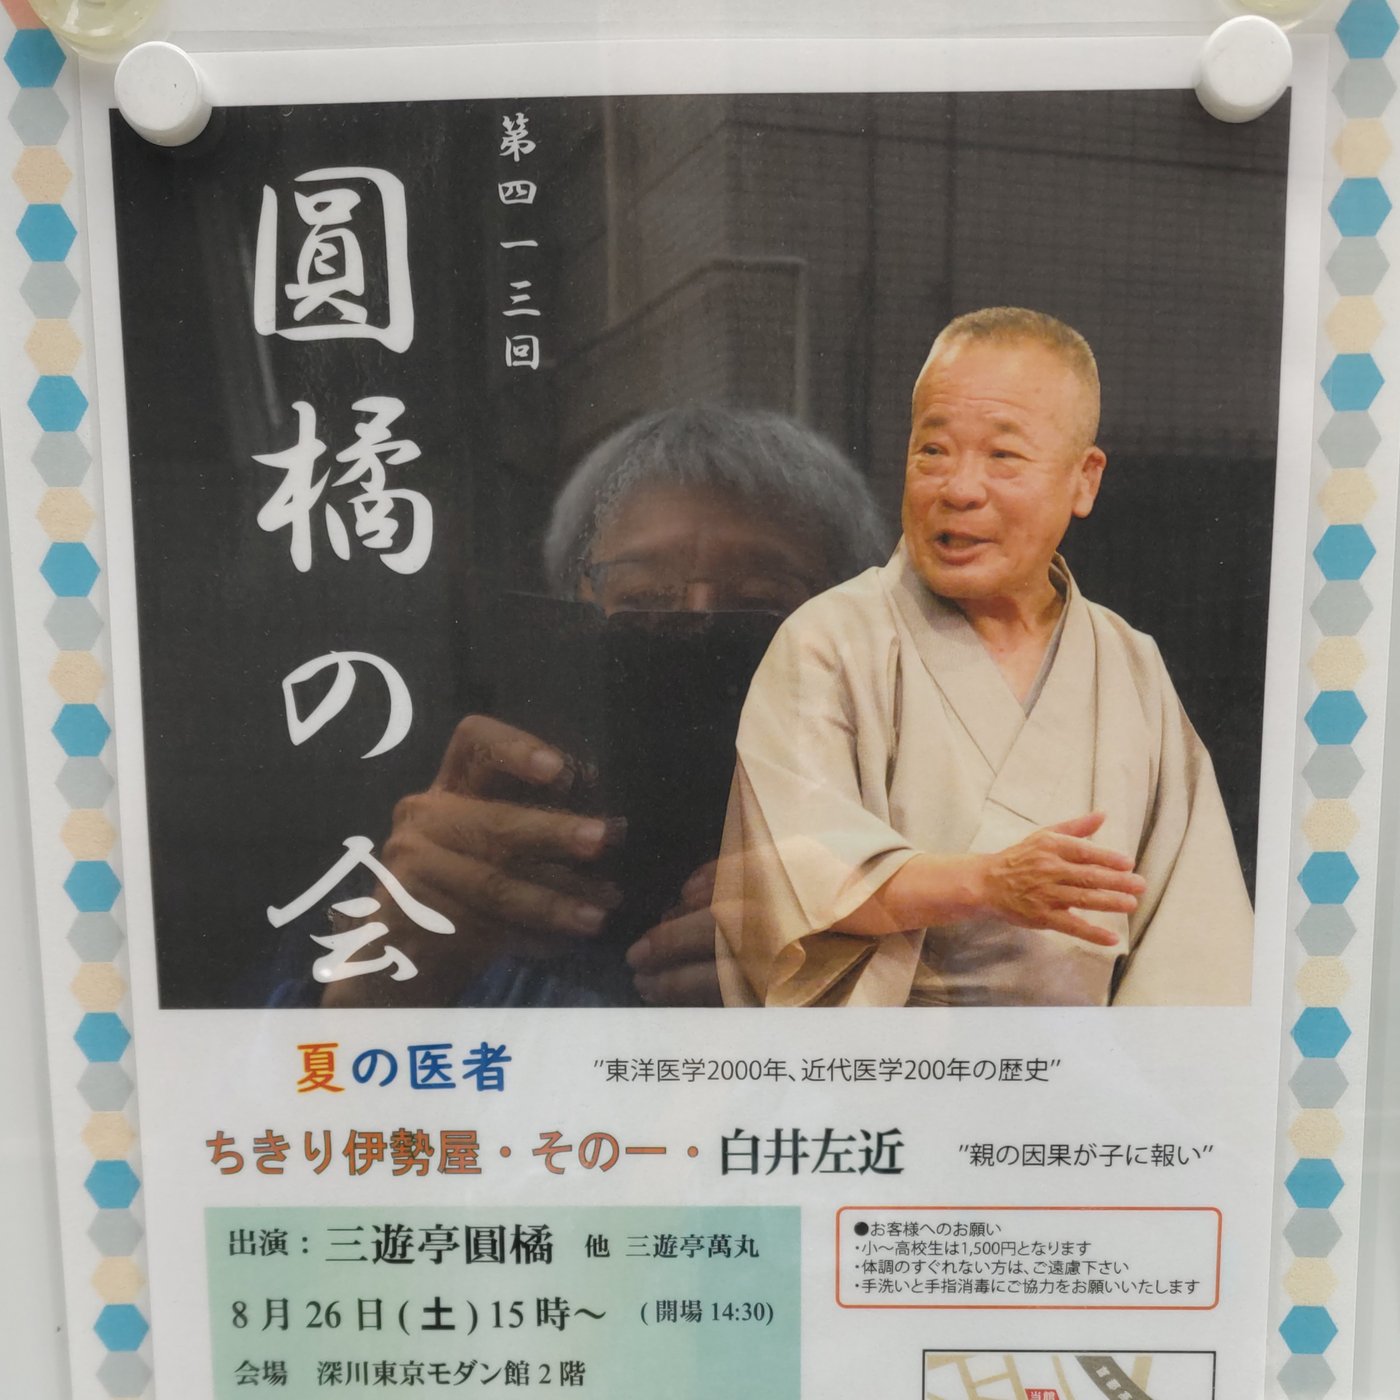 第四一三回
圓橘の会
夏の医者
"東洋医学2000年、近代医学200年の歴史"
ちきり伊勢屋・その一・白井左近
"親の因果が子に報い"
出演：三遊亭圓橘 他 三遊亭萬丸
8月26日(土)15時～ (開場14:30)
会場 深川東京モダン館2階
●お客様へのお願い
・小～高校生は1,500円となります
・体調のすぐれない方は、ご遠慮下さい
・手洗いと手指消毒にご協力をお願いいたします
当館